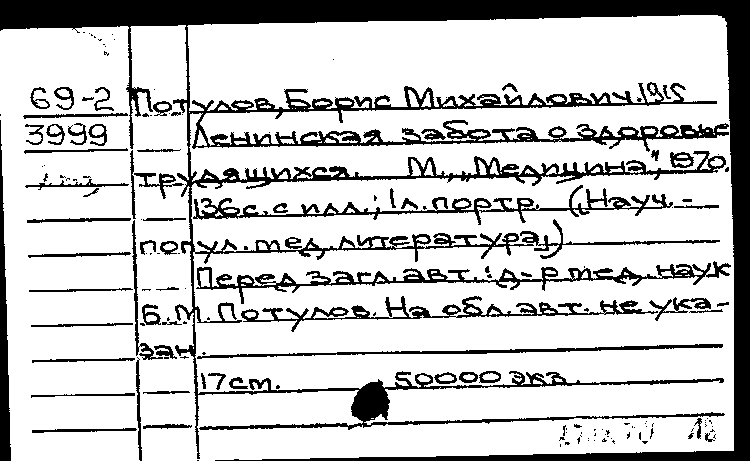 69-2 Потулов, Борис Михайлович. 1915
3999 Ленинская забота о здоровье
трудящихся. М., „Медицина", 1970.
136 с. с илл.; 1 л. портр. („Науч.-
попул. мед. литература")
Перед загл. авт.: д-р мед. наук
Б.М. Потулов. На обл. авт. не ука-
зан.
17 cm. 50000 экз.
18